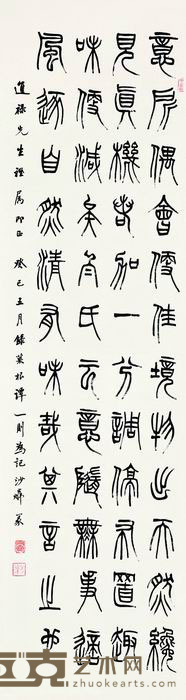 意所偶會便佳境物出天然纔
見真機若加一分調停布置趣
味便減矣白氏云意隨無事適
風逐自然清有味哉其言之也
祿先生 屬即正 癸巳五月錄菜根譚一則為記 沙 篆
艺术网
www.zhuokearts.com